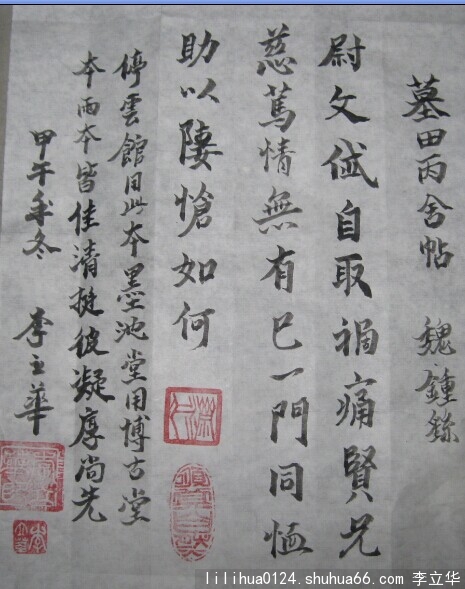 墓田丙舍帖 魏鍾繇
尉文岱自取禍痛賢兄
慈篤情無有已一門同恤
助以悽愴如何
停雲館用此本墨池堂用博古堂
本兩本皆佳清挺彼凝厚尚先
甲午年冬 李立華
lilihua0124.shuhua66.com 李立华